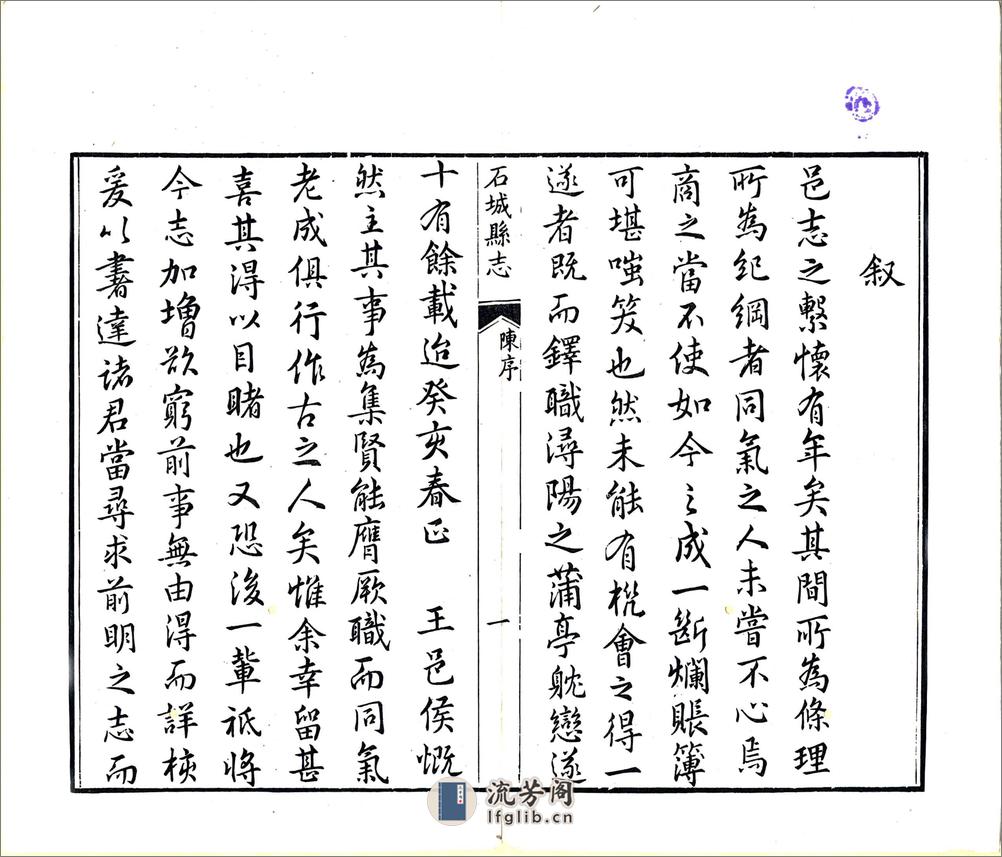 叙
邑志之繫懷有年矣其間所為條理
所為紀綱者同氣之人未嘗不心焉
商之當不使如今之成一斷爛賬簿
可堪嗤笑也然未能有機會之得一
遂者既而鐸職潯陽之蒲亭躭戀遂
石城縣志
陳序
一
十有餘載迨癸亥春正 王邑侯慨
然主其事為集賢能膺厥職而同氣
老成俱行作古之人矣惟余幸留甚
喜其得以目睹也又恐後一輩祗將
今志加增欲窮前事無由得而詳核
爰以書達諸君當尋求前明之志而
流芳阁
lfglib.cn